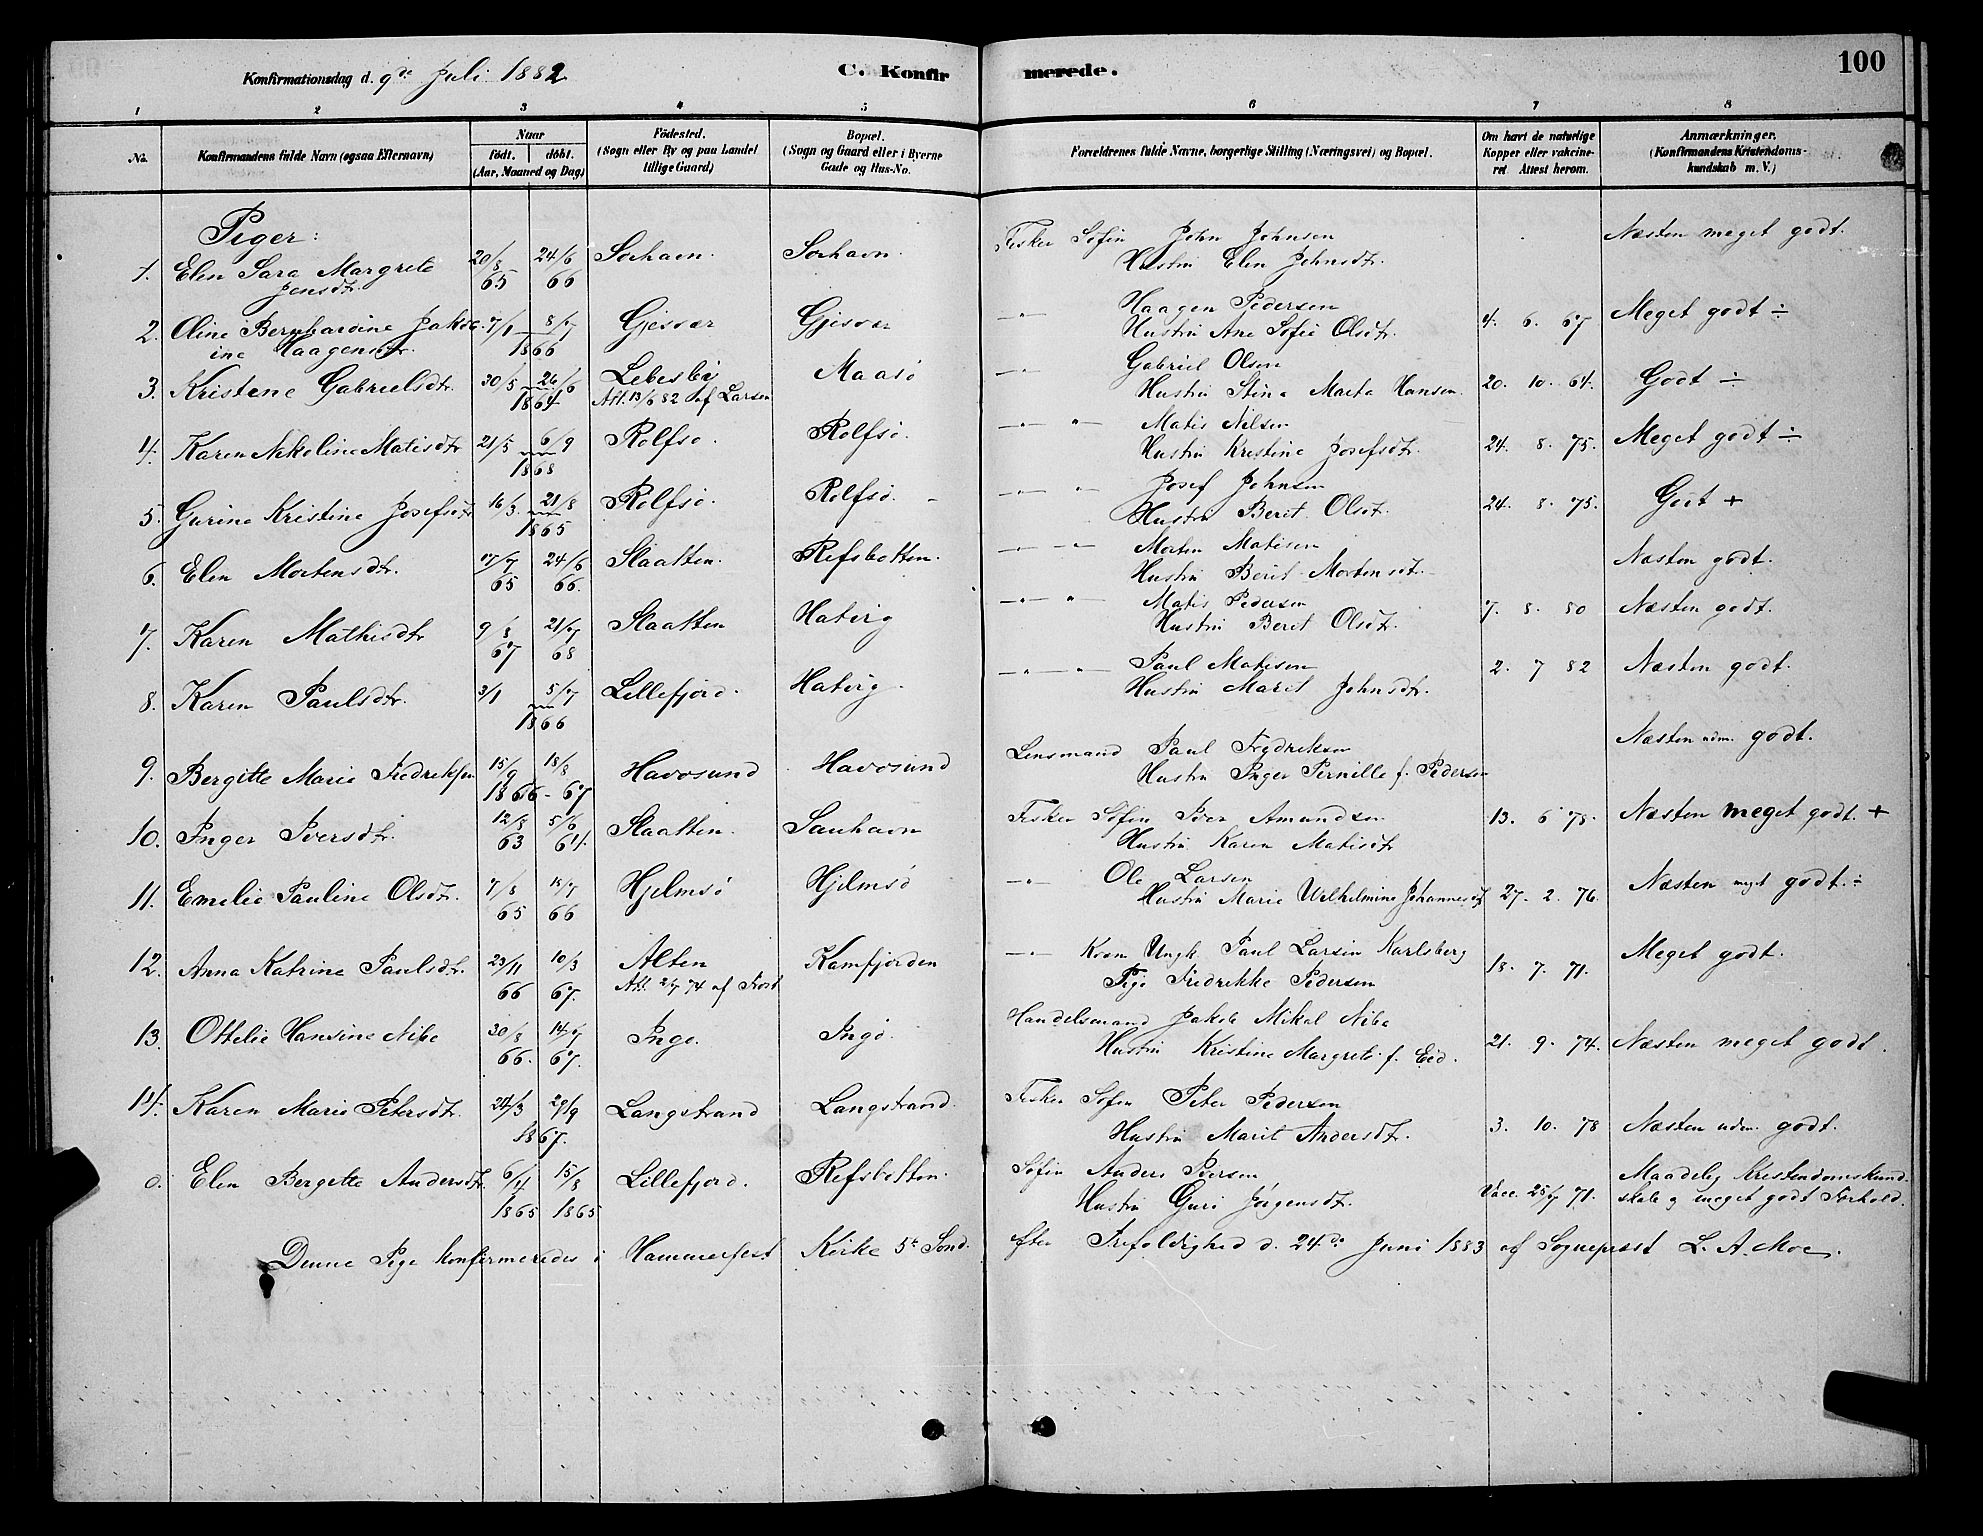 Konfirmationsdag d. 9de Juli 1882
C. Konfirmerede.
100
1 2 3 4 5 6 7 8
No.
Konfirmandens fulde Navn (ogsaa Efternavn)
Naar
født. døbt.
(Aar, Maaned og Dag)
Fødested.
(Sogn eller By og paa Landet
tillige Gaard)
Bopæl.
(Sogn og Gaard eller i Byerne
Gade og Hus-No.
Forældrenes fulde Navne, borgerlige Stilling (Næringsvei) og Bopæl.
Om havt de naturlige
Kopper eller vakcine-
ret Attest herom.
Anmærkninger.
(Konfirmandens Kristendoms-
kundskab m. V.)
Piger:
1. Elen Sara Margrete 20/8 24/6 Sørhavn. Sørhavn. Fisker Søfin John Johnsen Næsten meget godt.
Jensdtr. 65 66 Hustru Elen Johnsdtr.
2. Oline Bernhardine Jakob- 7/1 8/7 Gjesvær Gjesvær —„— Haagen Pedersen Meget godt ÷
ine Haagensdtr. 1866 Hustru Ane Sofie Olsdtr. 4. 6. 67
3. Kristene Gabrielsdtr. 30/5 26/6 Lebesby Maasø —„— Gabriel Olsen Godt ÷
1864 Att. 13/6 82 af Larsen Hustru Stina Marta Hansen. 20. 10. 64.
4. Karen Nikoline Matisdtr 21/5 6/9 Rolfsø. Rolfsø. —„— „ Matis Nilsen Meget godt ÷
1868 Hustru Kristine Josefsdtr. 24. 8. 75.
5. Gurine Kristine Josefsdtr 16/3. 21/8 Rolfsø. Rolfsø. —„— „— Josef Johnsen Godt +
1865 Hustru Berit Olsdtr. 24. 8. 75.
6. Elen Mortensdtr. 17/7 24/6 Slaatten. Refsbotten. —„— „— Morten Matisen Næsten godt.
65 66. Hustru Berit Mortensdtr.
7. Karen Mathisdtr 9/8 21/7 Slaatten Hatvig —„— „— Matis Pedersen 7. 8. 80 Næsten godt.
67 68 Hustru Berit Olsdtr.
8. Karen Paulsdtr. 3/1 5/7 Lillefjord. Hatvig. —„— „— Paul Matisen 2. 7 82 Næsten godt.
1866 Hustru Marit Johnsdtr.
9. Bergitte Marie Fredriksen 15/9 18/8 Havøsund Havøsund Lensmand Paul Fredriksen Næsten udm. godt.
1866- 67 Hustru Inger Pernille f. Pedersen
10. Inger Iversdtr. 12/8 5/6 Slaatten. Sauhavn Fisker Søfin Iver Amundsen 13. 6 78. Næsten meget godt. +
63 64. Hustru Karen Matisdtr
11. Emelie Pauline Olsdtr. 7/8 18/7 Hjelmsø Hjelmsø —„— Ole Larsen Næsten mgt godt. ÷
65 66 Hustru Marie Wilhelmine Johannesdtr 27. 2. 76.
12. Anna Katrine Paulsdtr. 23/11 10/3 Alten Kamfjorden —„— Kvæn Ungk. Paul Larsen Karlsberg Meget godt.
66 67. Att. 2/7 74 af Frost Pige Fredrikke Pedersen 18. 7. 71.
13. Ottelie Hansine Nibe 30/8 14/7 Ingø. Ingø. Handelsmand Jakob Mikal Nibe
66. 67. Hustru Kristine Margrete f. Eid. 21. 9. 74. Næsten meget godt.
14. Karen Marie Petersdtr. 24/3 29/9 Langstrand Langstrand. Fisker Søfin Peter Pedersen
1867. Hustru Marit Andersdtr. 3. 10. 78 Næsten udm. godt.
0. Elen Bergette Andersdtr. 6/4 15/8 Lillefjord. Refsbotten. Søfin Anders Persen Maadelig Kristendomskund-
1865 1865 Hustru Guri Jørgensdtr. Vacc. 25/7 71. skab og meget godt Forhold.
Denne Pige konfirmeredes i Hammerfest Kirke 5te Sønd. efter Trefoldighed d. 24de Juni 1883 af Sognepræst L. A. Moe.